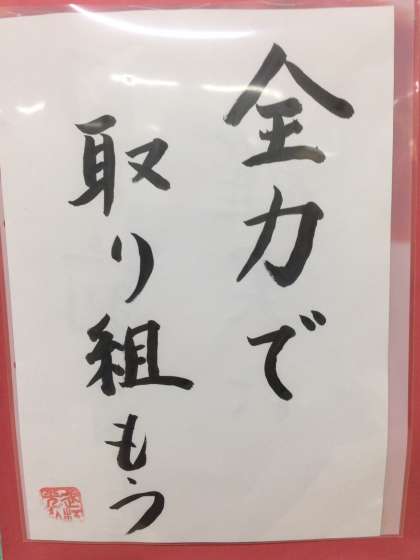 全力で
取り組もう